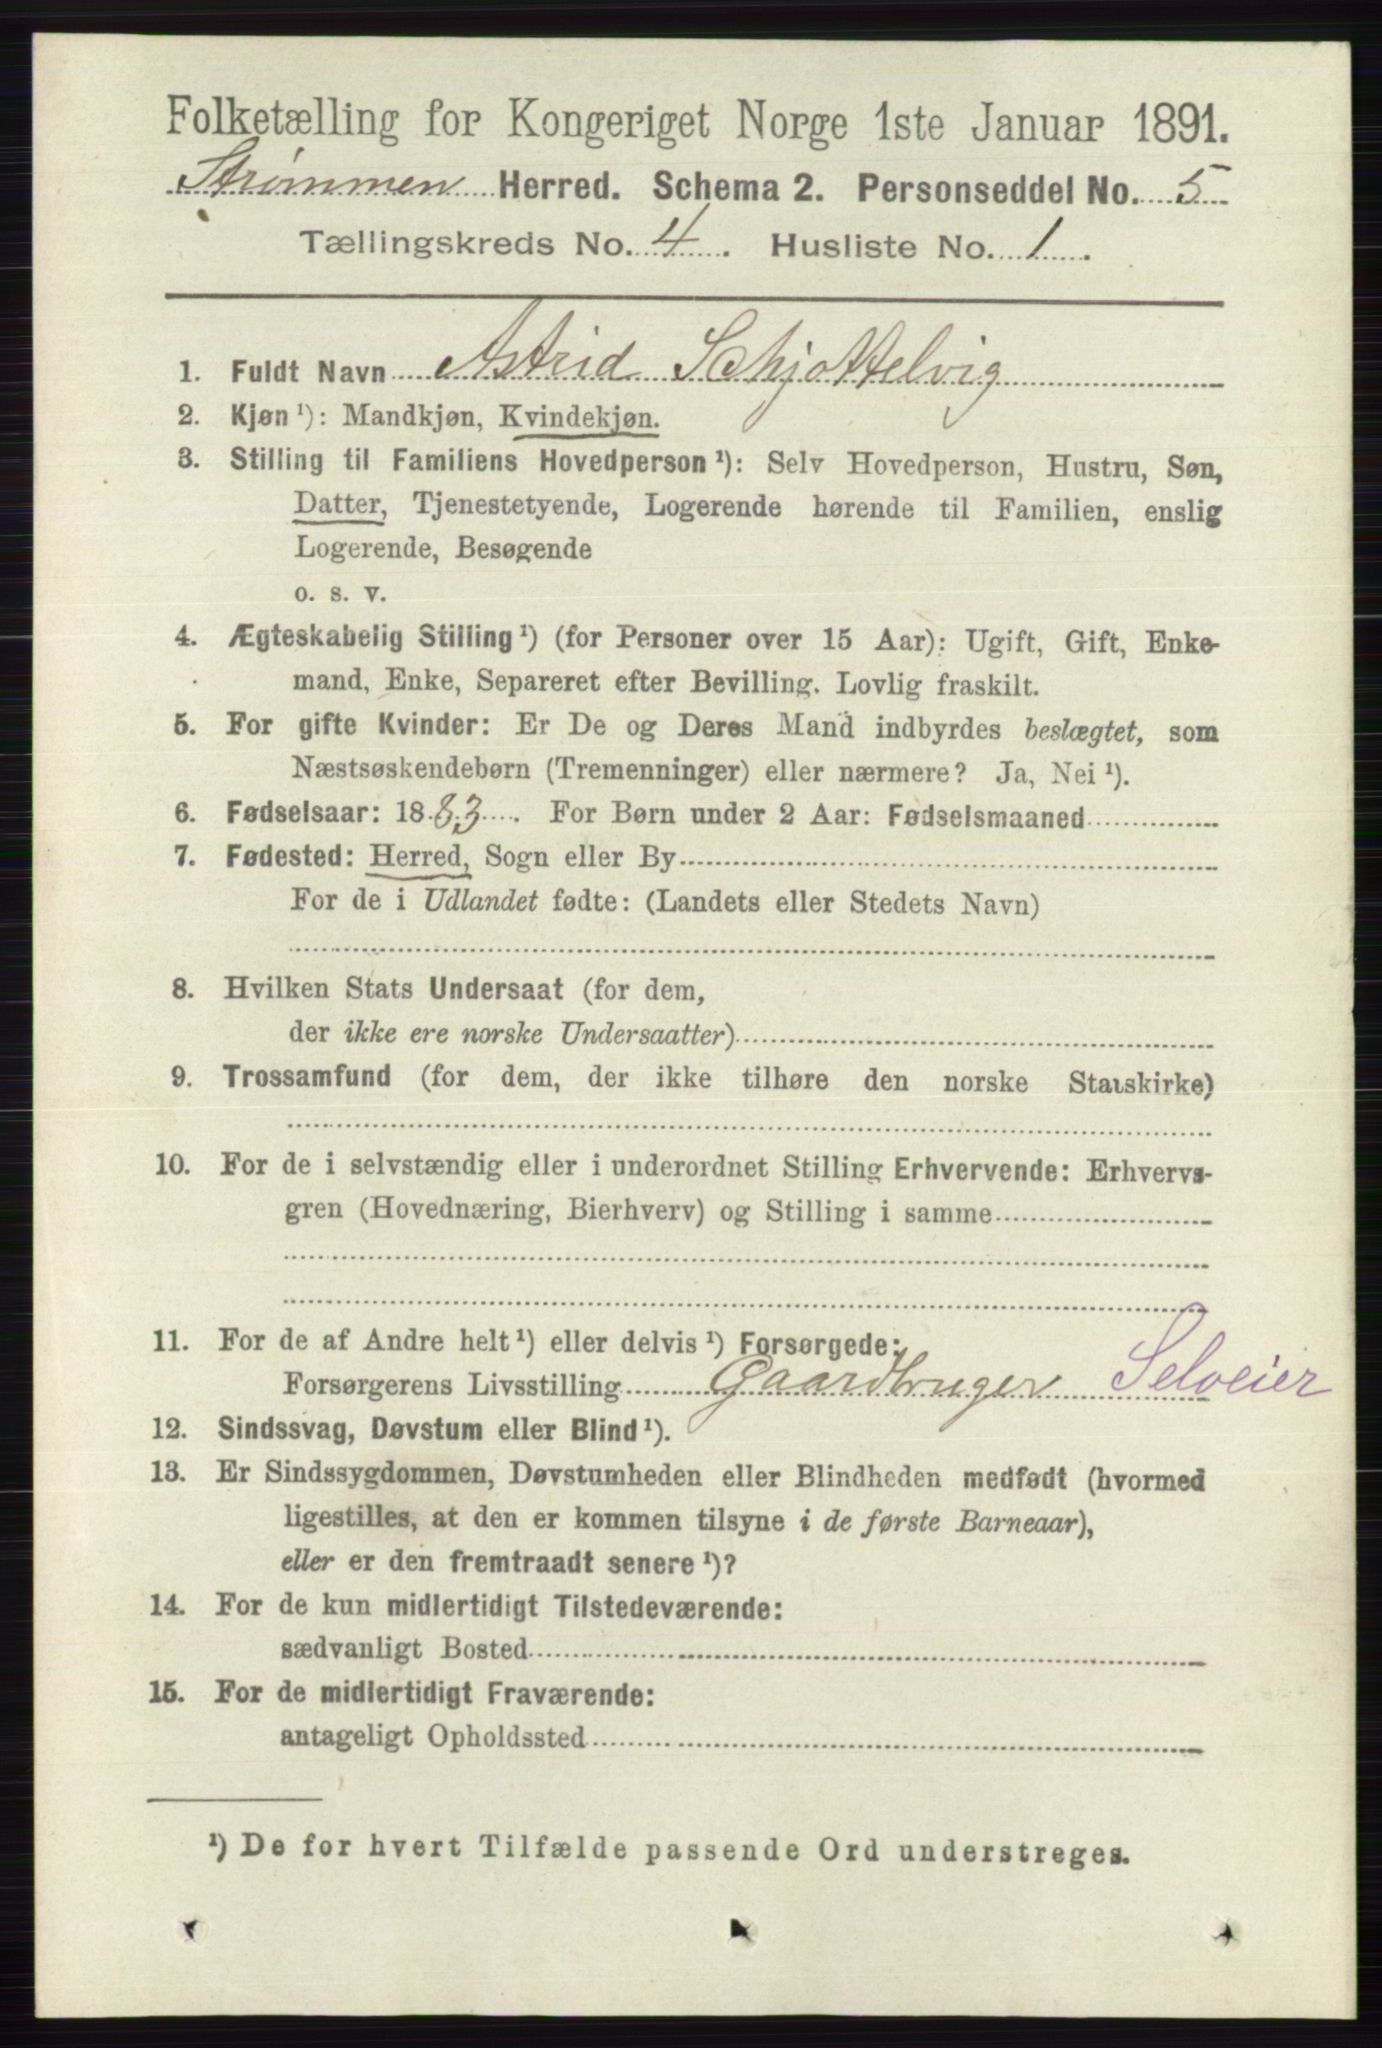 Folketælling for Kongeriget Norge 1ste Januar 1891.
Strømmen Herred. Schema 2. Personseddel No. 5
Tællingskreds No. 4. Husliste No. 1.
1. Fuldt Navn Astrid Schjottelvig
2. Kjøn ¹): Mandkjøn, Kvindekjøn.
3. Stilling til Familiens Hovedperson ¹): Selv Hovedperson, Hustru, Søn,
Datter, Tjenestetyende, Logerende hørende til Familien, enslig
Logerende, Besøgende
o. s. v.
4. Ægteskabelig Stilling ¹) (for Personer over 15 Aar): Ugift, Gift, Enke-
mand, Enke, Separeret efter Bevilling. Lovlig fraskilt.
5. For gifte Kvinder: Er De og Deres Mand indbyrdes beslægtet, som
Næstsøskendebørn (Tremenninger) eller nærmere? Ja, Nei ¹).
6. Fødselsaar: 1883. For Børn under 2 Aar: Fødselsmaaned
7. Fødested: Herred, Sogn eller By
For de i Udlandet fødte: (Landets eller Stedets Navn)
8. Hvilken Stats Undersaat (for dem,
der ikke ere norske Undersaatter)
9. Trossamfund (for dem, der ikke tilhøre den norske Statskirke)
10. For de i selvstændig eller i underordnet Stilling Erhvervende: Erhvervs-
gren (Hovednæring, Bierhverv) og Stilling i samme
11. For de af Andre helt ¹) eller delvis ¹) Forsørgede:
Forsørgerens Livsstilling Gaardbruger Selveier
12. Sindssvag, Døvstum eller Blind ¹).
13. Er Sindssygdommen, Døvstumheden eller Blindheden medfødt (hvormed
ligestilles, at den er kommen tilsyne i de første Barneaar),
eller er den fremtraadt senere ¹)?
14. For de kun midlertidigt Tilstedeværende:
sædvanligt Bosted
15. For de midlertidigt Fraværende:
antageligt Opholdssted
¹) De for hvert Tilfælde passende Ord understreges.